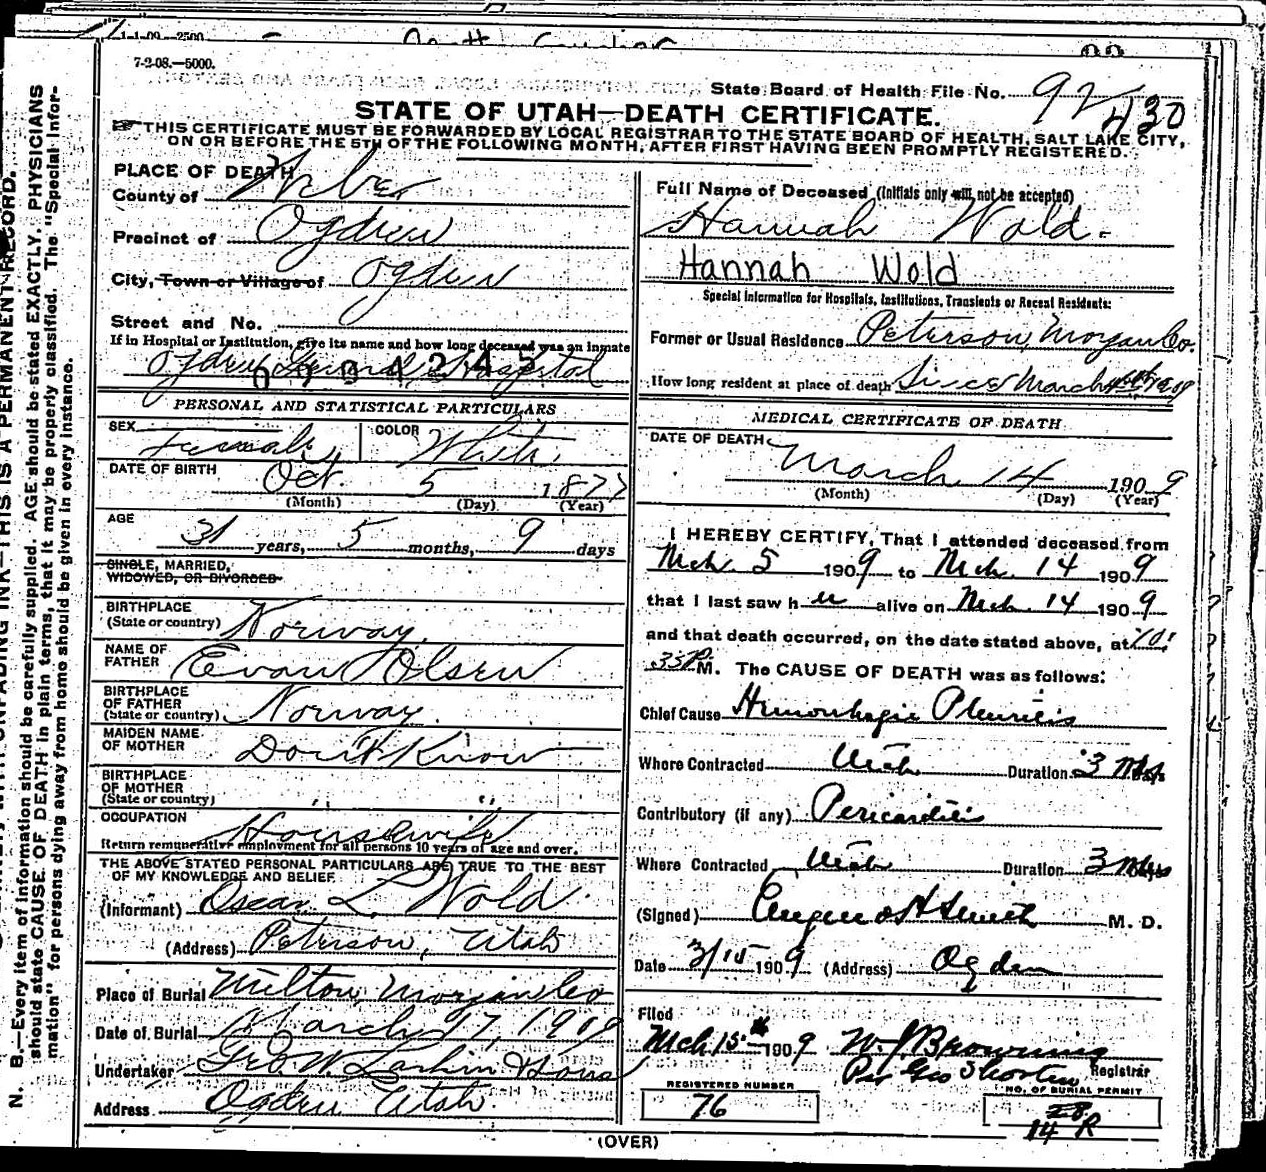 1-1-09—2500.
7-2-08.—5000.
State Board of Health File No. 92 430
STATE OF UTAH—DEATH CERTIFICATE.
THIS CERTIFICATE MUST BE FORWARDED BY LOCAL REGISTRAR TO THE STATE BOARD OF HEALTH, SALT LAKE CITY,
ON OR BEFORE THE 5TH OF THE FOLLOWING MONTH, AFTER FIRST HAVING BEEN PROMPTLY REGISTERED.
PLACE OF DEATH
County of Weber
Precinct of Ogden
City, Town or Village of Ogden
Street and No.
If in Hospital or Institution, give its name and how long deceased was an inmate
Ogden General Hospital
PERSONAL AND STATISTICAL PARTICULARS
SEX Female COLOR White
DATE OF BIRTH Oct. 5 1877
(Month) (Day) (Year)
AGE 31 years, 5 months, 9 days
SINGLE, MARRIED,
WIDOWED, OR DIVORCED
BIRTHPLACE
(State or country) Norway.
NAME OF
FATHER Evan Olsen
BIRTHPLACE
OF FATHER
(State or country) Norway.
MAIDEN NAME
OF MOTHER Don't Know
BIRTHPLACE
OF MOTHER
(State or country) " "
OCCUPATION Housewife
Return remunerative employment for all persons 10 years of age and over.
THE ABOVE STATED PERSONAL PARTICULARS ARE TRUE TO THE BEST
OF MY KNOWLEDGE AND BELIEF.
(Informant) Oscar L. Wold
(Address) Peterson, Utah
Place of Burial Milton, Morgan Co
Date of Burial March 17, 1909
Undertaker Geo. W. Larkin & Sons
Address Ogden Utah.
Full Name of Deceased (Initials only will not be accepted)
Hannah Wold.
Hannah Wold
Special Information for Hospitals, Institutions, Transients or Recent Residents:
Former or Usual Residence Peterson, Morgan Co.
How long resident at place of death Since March 1909
MEDICAL CERTIFICATE OF DEATH
DATE OF DEATH
March 14 1909
(Month) (Day) (Year)
I HEREBY CERTIFY, That I attended deceased from
Mch. 5 1909 to Mch. 14 1909
that I last saw her alive on Mch. 14 1909
and that death occurred, on the date stated above, at 10:
35 P M. The CAUSE OF DEATH was as follows:
Chief Cause Hemorrhagic Pleuritis
Where Contracted Utah Duration 3 Mos
Contributory (if any) Pericarditis
Where Contracted Utah Duration 3 Mos
(Signed) Eugene H Smith M. D.
Date 3/15 1909 (Address) Ogden
Filed
Mch 15th 1909 W. J. Browning
Per Geo Shorten Registrar
REGISTERED NUMBER
76
NO. OF BURIAL PERMIT
14 R
(OVER)
N. B.—Every item of information should be carefully supplied. AGE should be stated EXACTLY. PHYSICIANS
should state CAUSE OF DEATH in plain terms, that it may be properly classified. The "Special Infor-
mation" for persons dying away from home should be given in every instance.